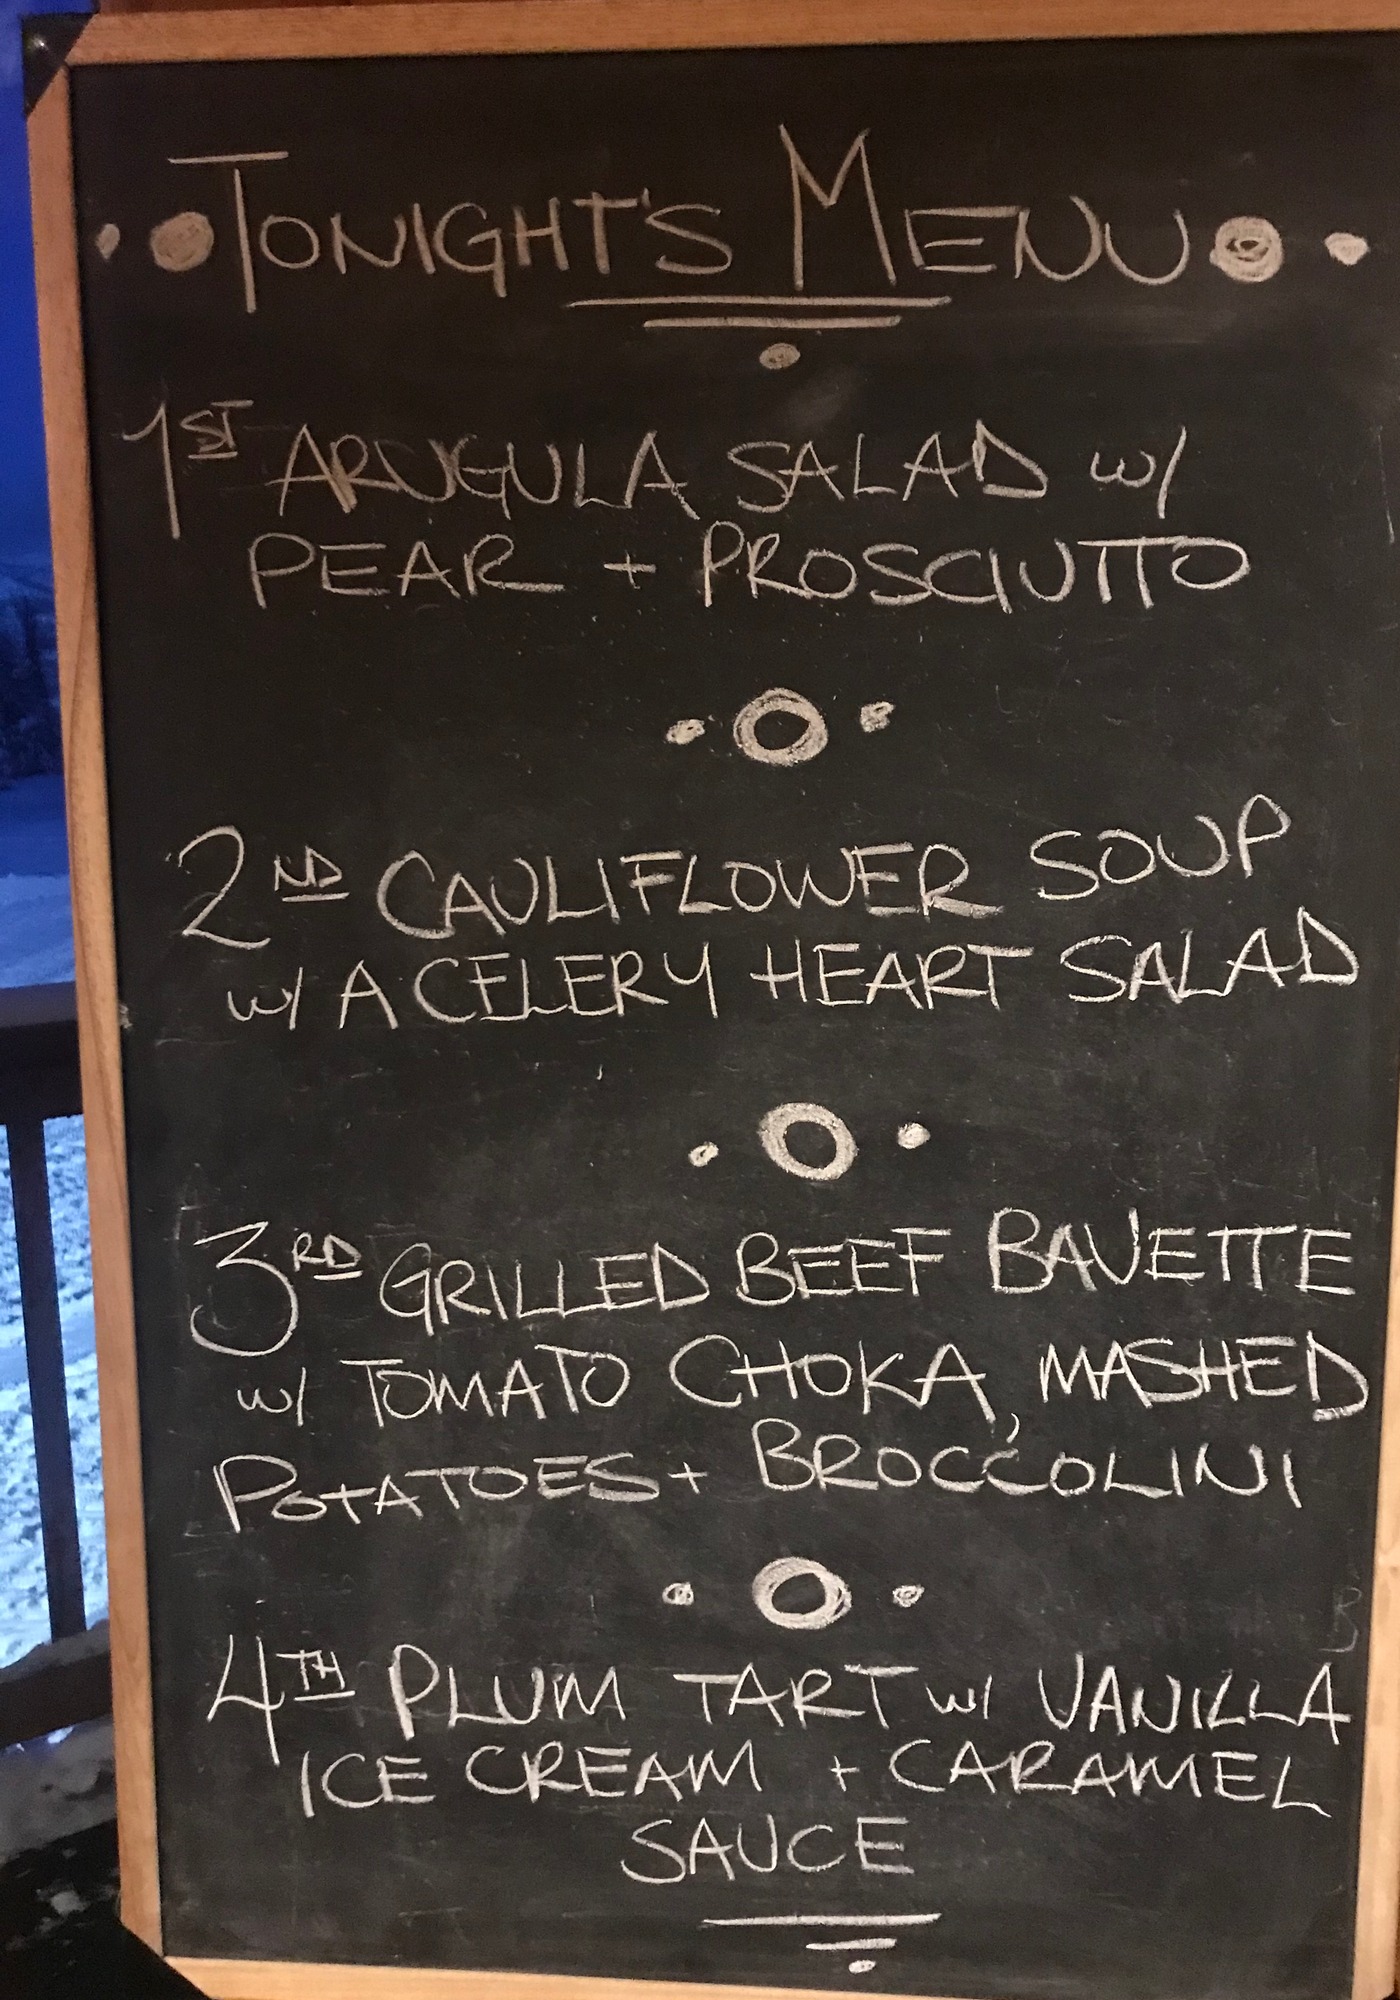 TONIGHT'S MENU
1ST ARUGULA SALAD w/
PEAR + PROSCIUTTO
2ND CAULIFLOWER SOUP
w/ A CELERY HEART SALAD
3RD GRILLED BEEF BAVETTE
w/ TOMATO CHOKA, MASHED
POTATOES + BROCCOLINI
4TH PLUM TART w/ VANILLA
ICE CREAM + CARAMEL
SAUCE